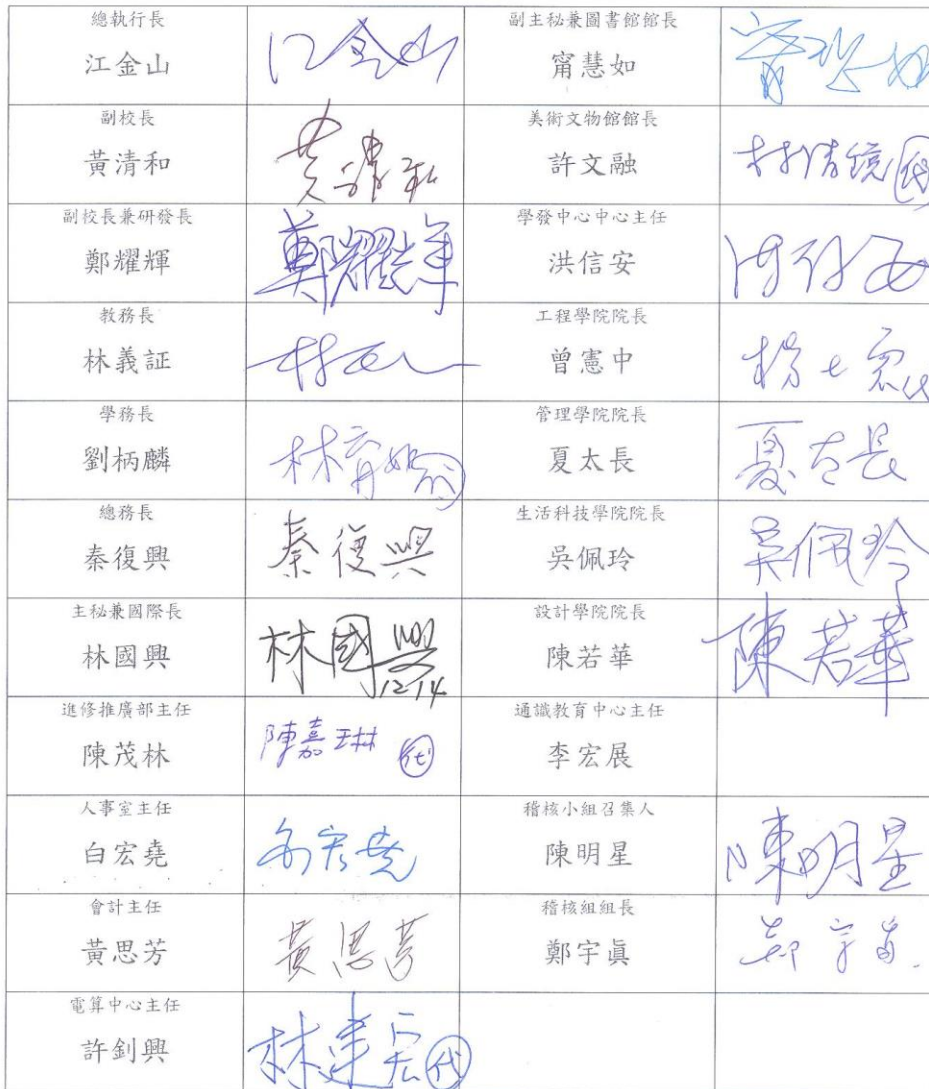 總執行長
江金山
江金山
副主秘兼圖書館館長
甯慧如
甯慧如
副校長
黃清和
黃清和
美術文物館館長
許文融
林清鏡 代
副校長兼研發長
鄭耀輝
鄭耀輝
學發中心中心主任
洪信安
洪信安
教務長
林義証
工程學院院長
曾憲中
學務長
劉柄麟
管理學院院長
夏太長
夏太長
總務長
秦復興
秦復興
生活科技學院院長
吳佩玲
吳佩玲
主秘兼國際長
林國興
林國興
12/14
設計學院院長
陳若華
陳若華
進修推廣部主任
陳茂林
陳嘉琳 代
通識教育中心主任
李宏展
人事室主任
白宏堯
白宏堯
稽核小組召集人
陳明星
陳明星
會計主任
黃思芳
黃思芳
稽核組組長
鄭宇眞
電算中心主任
許釗興
林建宏 代